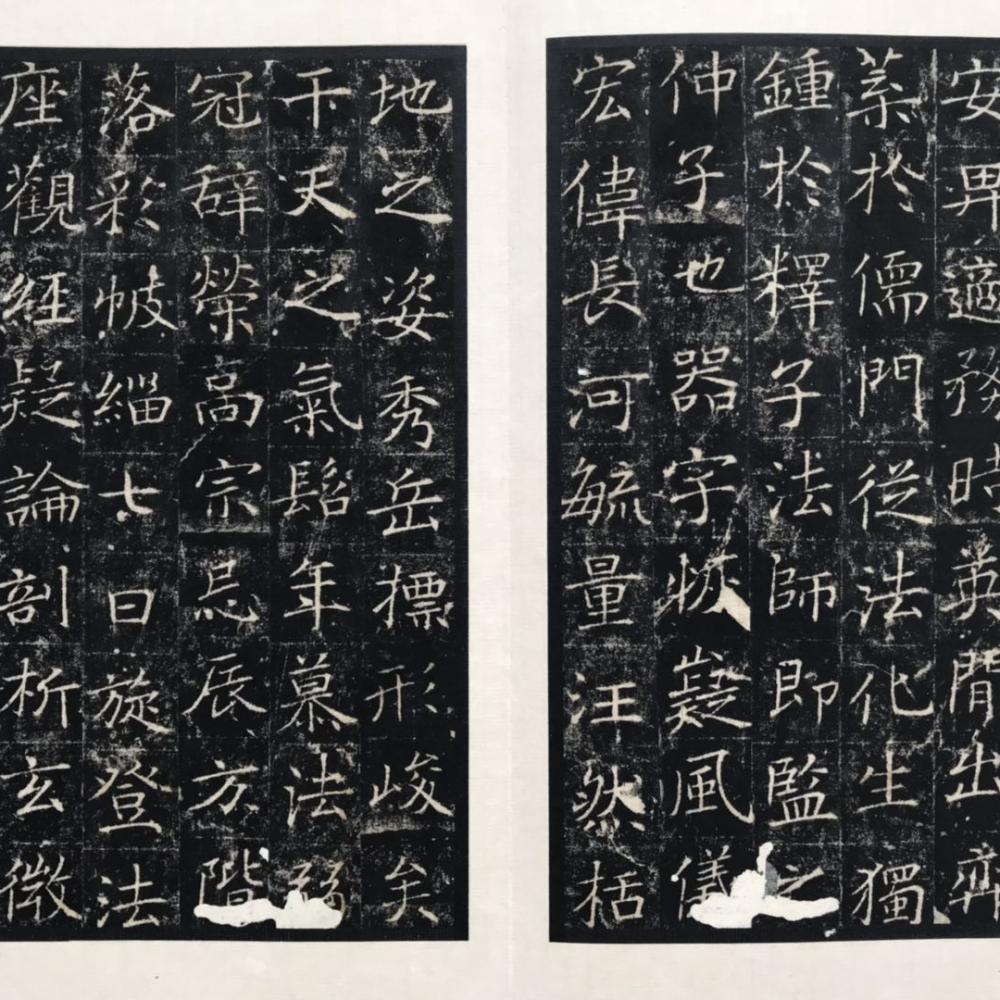 安卑適務時英閒出弈
葉於儒門從法化生獨
鍾於釋子法師即監之
仲子也器宇恢嶷風儀
宏偉長河毓量汪然括
地之姿秀岳摽形峻矣
干天之氣髫年慕法弱
冠辭榮高宗忌辰方階
落彩帔緇七日旋登法
座觀經疑論剖析玄微